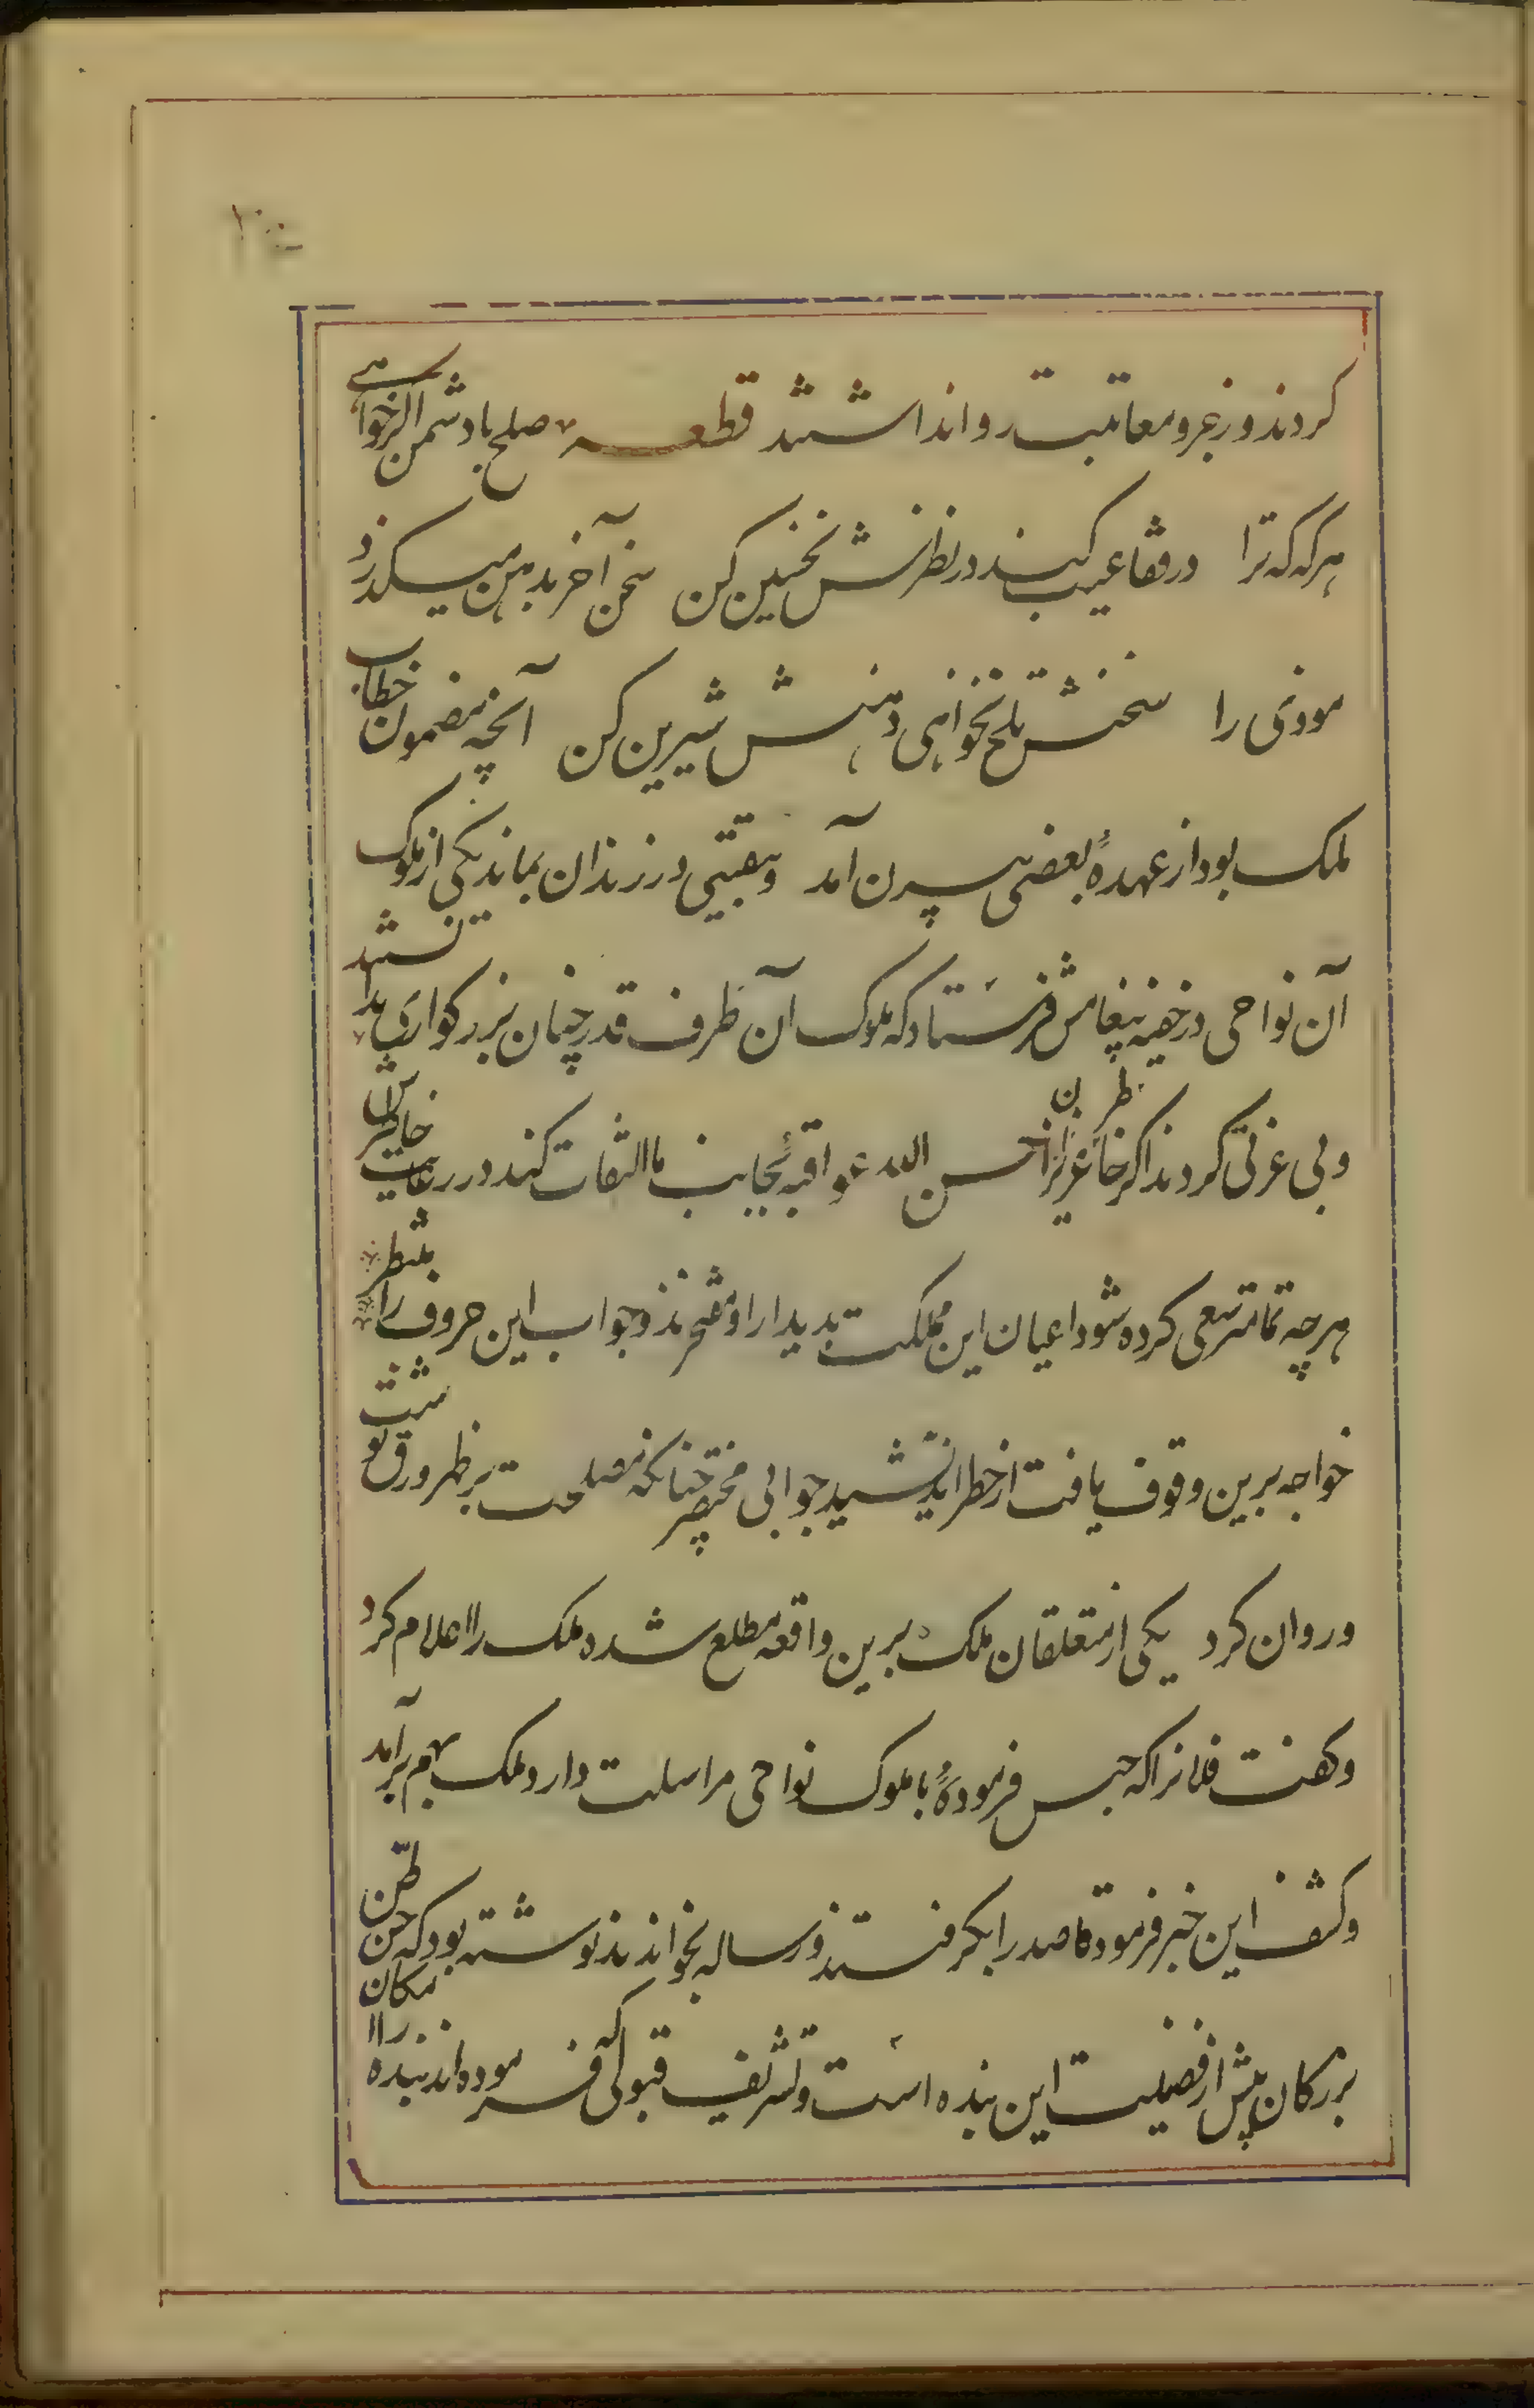 کردند و زجر و معاتبت روا نداشتند قطعه صلح با دشمن اگر خواهی
هرگه که ترا در قفا عیب کند در نظرش تحسین کن سخن آخر بدهن میگذرد
موذی را سخنش تلخ نخواهی دهنش شیرین کن آنچه مضمون خطاب
ملک بود از عهدهٔ بعضی بیرون آمد و ببقیتی در زندان بماند یکی از ملوک
آن نواحی در خفیه پیغامش فرستاد که ملوک آن طرف قدر چنان بزرگواری ندانستند
و بی عزتی کردند اگر خاطر عزیزان احسن الله عواقبه بجانب ما التفات کند در رعایت خاطرش
هرچه تمامتر سعی کرده شود اعیان این مملکت بدیدار او مفتخرند و جواب این حروف را منتظر
خواجه برین وقوف یافت از خطر اندیشید جوابی مختصر چنانکه مصلحت بر ظهر ورق نوشت
و روان کرد یکی از متعلقان ملک برین واقعه مطلع شده ملک را اعلام کرد
و گفت فلانرا که حبس فرمودهٔ با ملوک نواحی مراسلت دارد ملک بهم برآمد
و کشف این خبر فرمود قاصد را بگرفتند و رساله بخواندند نوشته بود که حسن ظن
بزرگان بیش از فضیلت این بنده است و تشریف قبولی که فرموده اند بنده را امکان